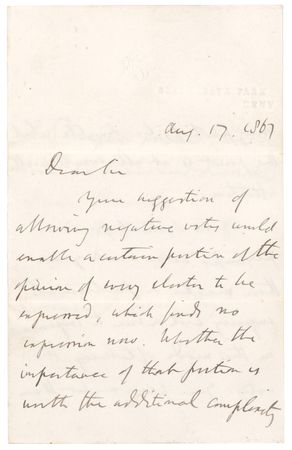 Aug. 17. 1867
Dear Sir
Your suggestion of
allowing negative votes would
enable a certain portion of the
opinion of every elector to be
expressed, which finds no
expression now. Whether the
importance of that portion is
worth the additional complexity